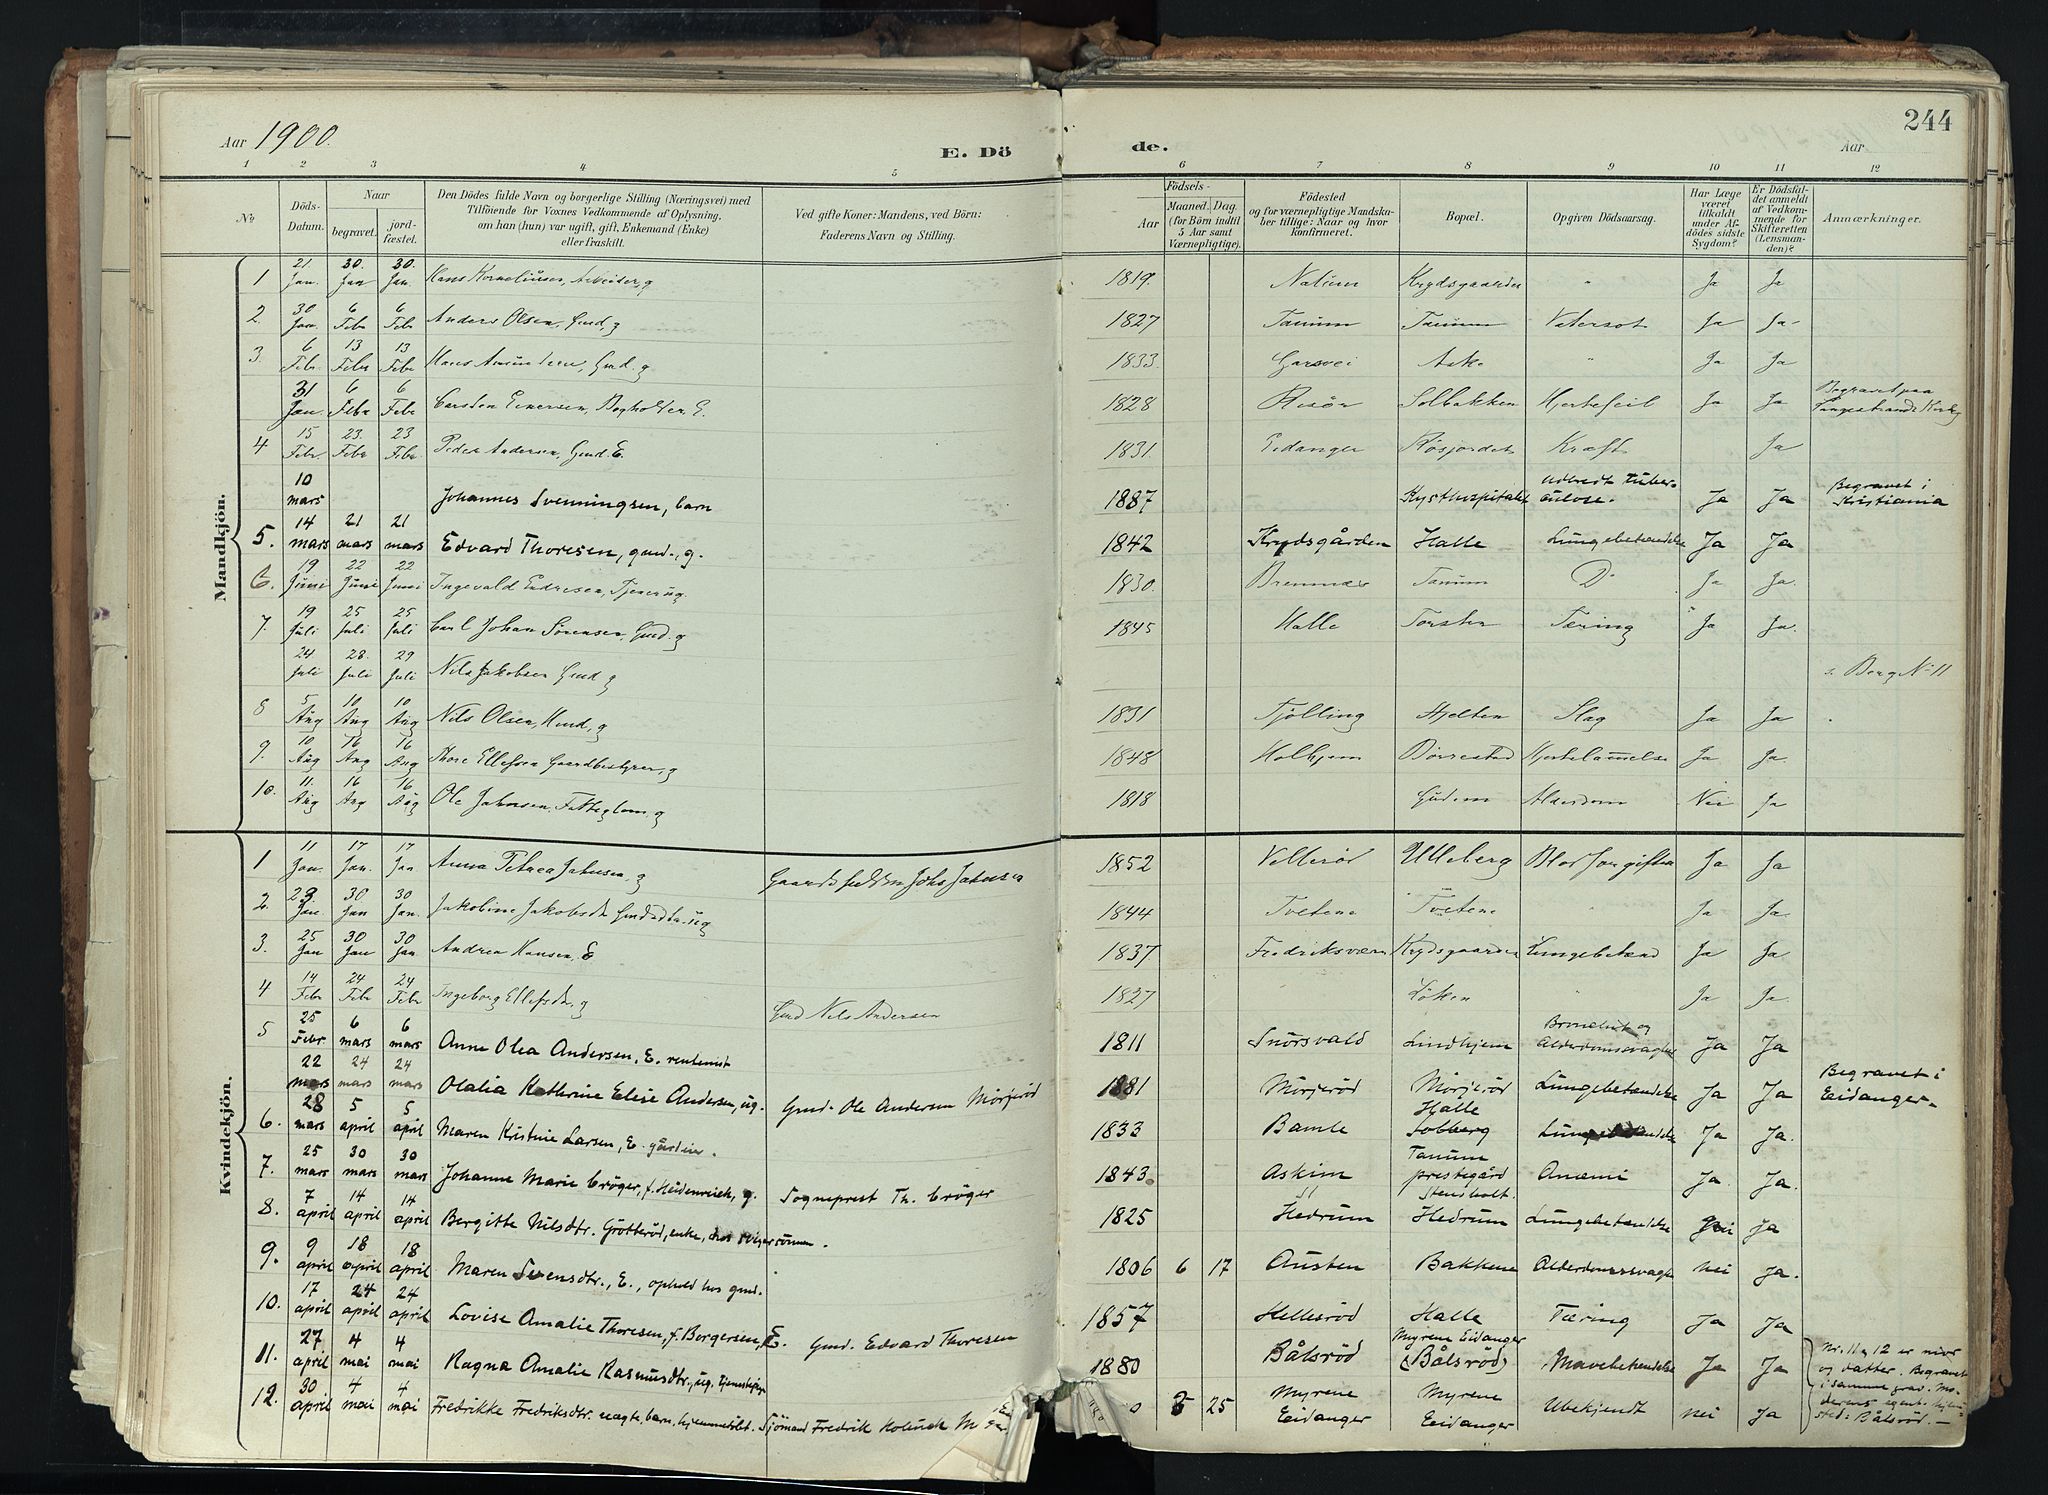 244
Aar 1900.
E. Dö de.
Aar
1 2 3 4 5 6 7 8 9 10 11 12
№
Döds-Datum.
Naar
begravet.
jord-fæstet.
Den Dödes fulde Navn og borgerlige Stilling (Næringsvei) med
Tilföiende for Voxnes Vedkommende af Oplysning.
om han (hun) var ugift, gift, Enkemand (Enke)
eller fraskilt.
Ved gifte Koner: Mandens, ved Börn:
Faderens Navn og Stilling.
Födsels-
Aar
Maaned. Dag.
(for Börn indtil
5 Aar samt
Værnepligtige).
Födested
og for værnepligtige Mandska-
ber tillige: Naar og hvor
konfirmeret.
Bopæl.
Opgiven Dödsaarsag.
Har Læge
været
tilkaldt
under Af-
dödes sidste
Sygdom?
Er Dödsfal-
det anmeldt
af Vedkom-
mende for
Skifteretten
(Lensman-
den)?
Anmærkninger.
Mandkjön.
1 21. Jan. 30. Jan 30. Jan. Hans Korneliusen, Arbeider, g 1819. Nalum Krydsgaarden " Ja Ja
2. 30 Jan. 6 Febr 6 Febr Anders Olsen, Gmd, g 1827 Tanum Tanum Vatersot Ja Ja
3. 6 Febr. 13 Febr 13 Febr Hans Amundsen, Gmd. g 1833 Aske " Ja Ja
31 Jan. 6 Febr 6 Febr Carsten E. 1828 Risör Solbakken Hjertefeil Ja Ja Begravet paa Langestrands Kirkeg
4 15 Febr. 23. Febr 23 Febr. Peder Andersen, Gmd. E. 1831. Eidanger Røsjordet Kræft Ja
10 mars Johannes Svenningsen, barn 1887 Kysthospitalet udbredt tuberculose. Ja Ja Begravet i Kristiania
5. 14 mars 21 mars 21 mars Edvard Thoresen, gmd., g. 1842 Krydsgården Halle Lungebetændelse Ja Ja
6. 19 Juni 22 Juni 22 Juni Ingevald Endresen, Tjener ug. 1830. Bremnes Tanum Do Ja Ja.
7. 19 Juli 25 Juli 25 Juli Carl Johan Sörensen, Gmd. g 1845 Halle Torster Tæring Ja Ja.
24 Juli 28. Juli 29 Juli Nils Jakobsen Gmd g s. Berg No 11
8 5 Aug 10 Aug 10 Aug Nils Olsen, g 1831 Tjølling Hjelten Slag Ja Ja
9. 10 Aug 16 Aug 16 Aug Thore Ellefsen Gaardbestyrer, g 1848 Holhjem Børrestad Hjertelammelse Ja Ja
10. 11. Aug 16 Aug 16 Aug Ole Jahnsen, Fatteglem. g 1818 Gudem Alderdom Nei Ja
Kvindekjön.
1 11 Jan. 17 Jan. 17 Jan Anna Petrea Jahnsen, g Johs Jahnsen 1852 Vellerød Ulleberg Blodforgiftn Ja Ja
2. 23. Jan. 30 Jan 30 Jan. Jakobine Jakobsdtr ug 1844 Tvetene Tvetene " Ja Ja
3. 25 Jan 30 Jan 30 Jan. Andrea Hansen, E 1837 Fredriksværn Krydsgaarden Lungebetænd Ja Ja
4 14 Febr 24 Febr 24 Febr Ingeborg Ellefsdtr, g Gmd Nils Andersen 1827 Löken " Ja Ja.
5 25 Febr 6 mars 6 mars Anne Olea Andersen, E. rentenist 1811 Snörsvald Lindhjem Bronchit og Alderdomssvaghed Ja Ja
22 mars 24 mars 24 mars Olalia Kathrine Elise Andersen, ug. Gmd. Ole Andersen Mörjeröd 1881 Mörjeröd Mörjeröd Lungebetændelse Ja Ja Begravet i Eidanger.
6. 28 mars 5 april 5 april Maren Kristine Larsen, E. gårdeier. 1833 Bamle Halle Solberg Lungebetændelse Ja Ja.
7. 25 mars 30 mars 30 mars Johanne Marie Cröger, f. Heidenreich, g. Sogneprest Th. Cröger 1843. Askim Tanum prestegård Anæmi Ja. Ja.
8. 7 april 14 april 14 april Bergitte Nilsdtr. Grötteröd, enke, hos svigersönnen. 1825 Hedrum Stensholt. Hedrum Lungebetændelse nei ja
9. 9 april 18 april 18 april Maren Svensdtr., E., ophold hos gmd. 1806 6 17 Austen Bakkene Alderdomssvaghed nei ja.
10. 17 april 24 april 24 april Lovise Amalie Thoresen, f. Borgersen, E. Gmd. Edvard Thoresen 1857 Helleröd Halle Tæring Ja Ja
11. 27 april 4 mai 4 mai Ragna Amalie Rasmusdtr., ug. tjenestepige 1880 Bålsröd Myrene Eidanger (Bålsröd) Mavebetændelse Ja Ja Nr. 11 og 12 er mor og datter. Begravet i samme grav. Moderens egentl. hjemsted: Bålsröd. —
12. 30 april 4 mai 4 mai Fredrikke Fredriksdtr. uægte, barn, hjemmedöbt. Sjömand Fredrik 0 5 25 Myrene Eidanger Myrene Eidanger Ubekjendt nei Ja